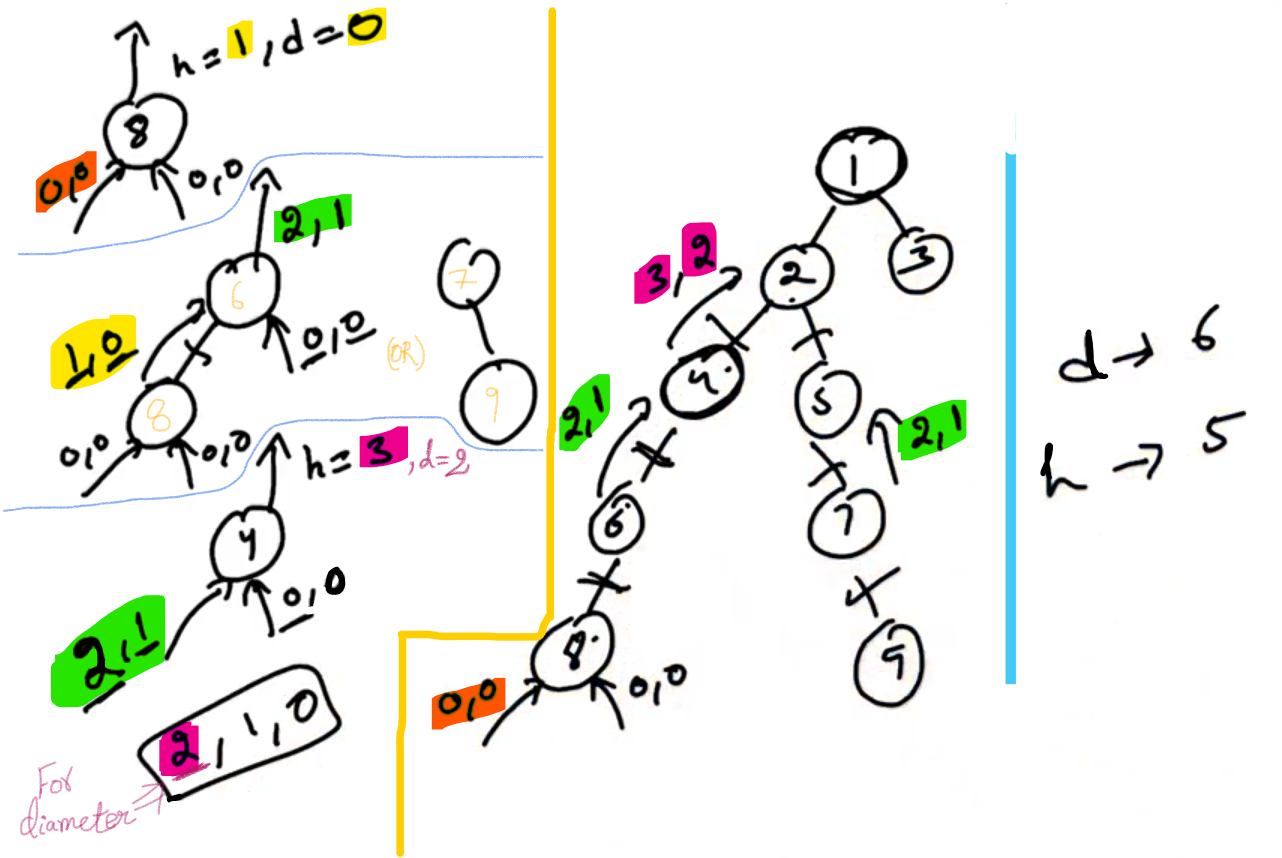 h = 1, d = 0
8
0,0
0,0
2,1
6
7
1,0
0,0
(OR)
8
9
0,0
0,0
h = 3, d=2
4
0,0
2,1
2, 1, 0
For
diameter
1
2
3
3,2
4
5
2,1
2,1
6
7
8
9
0,0
0,0
d → 6
h → 5